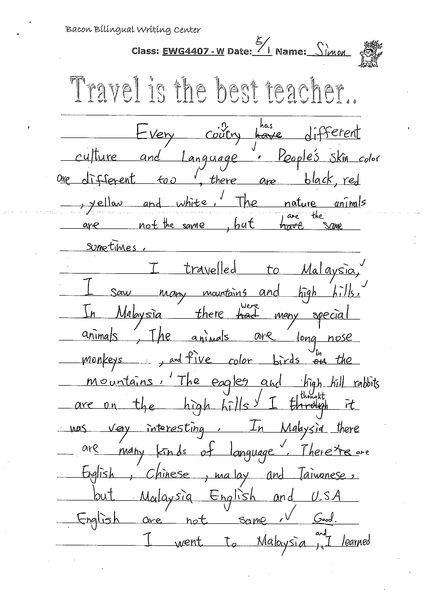 Bacon Bilingual Writing Center
Class: EWG4407 - W Date: 5/1 Name: Simon
Travel is the best teacher..
Every coutry n have has different
culture and Language. People's skin color
are different too, there are black, red
, yellow and white. The nature animals
are not the same, but have are the same
sometimes.
I travelled to Malaysia,
I saw many mountains and high hills.
In Malaysia there had were many special
animals, The animals are long nose
monkeys , and five color birds on in the
mountains. The eagles and high hill rabbits
are on the high hills. I through thought it
was very interesting. In Malaysia there
are many kinds of language. There're are
English, Chinese, malay and Taiwanese,
but Malaysia English and U.S.A
English are not same. Good.
I went to Malaysia and I learned